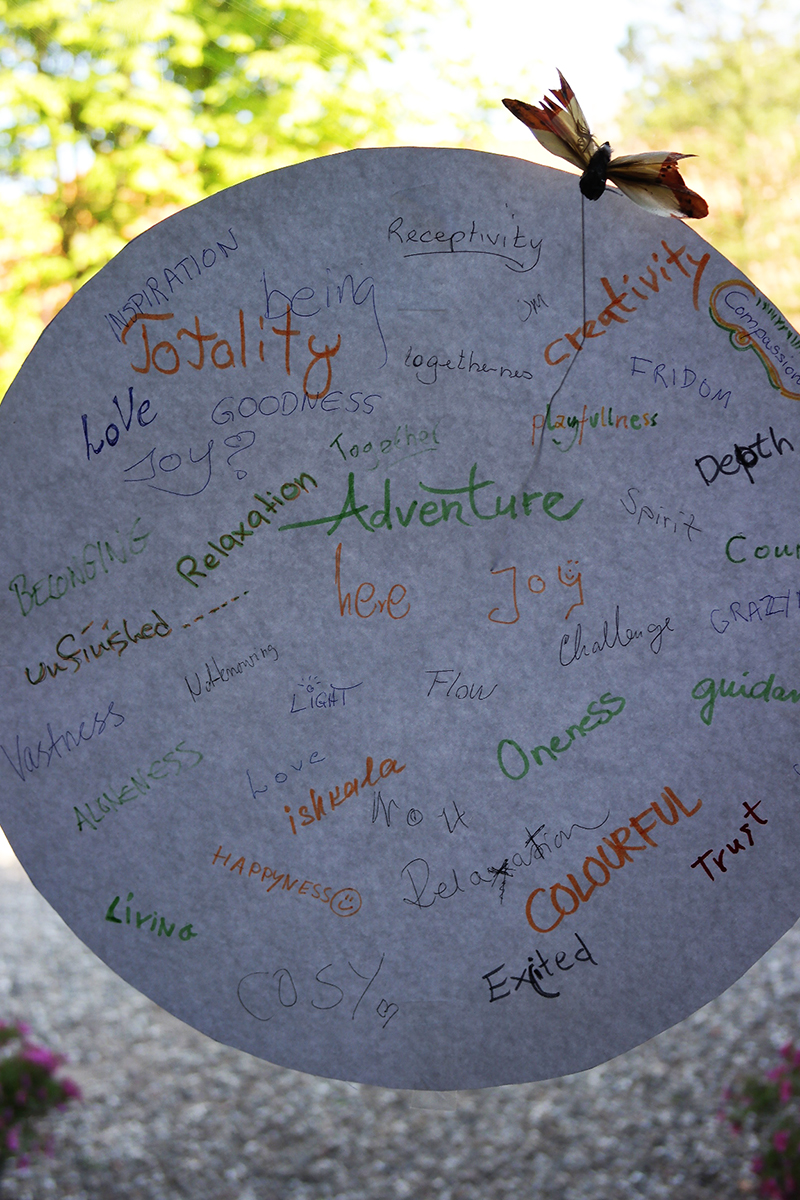 Receptivity
INSPIRATION
being
creativity
Compassion
Totality
togethernes
FRIDOM
LOVE
GOODNESS
playfullness
JOY?
Depth
Relaxation
Adventure
Spirit
BELONGING
Cour
here
Joy
unfinished ------
Challenge
Notknowing
LIGHT
Flow
guidan
Vastness
Oneness
ALONENESS
Love
ishkala
HAPPYNESS
Relaxation
COLOURFUL
Trust
Living
Exited
COSY